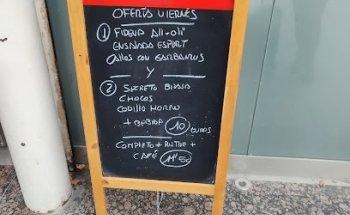 OFERTA VIERNES
1 FIDEUA ALL-OLI
ENSALADA ESPORT
CALLOS CON GARBANZOS
Y
2 SECRETO BRASA
CHOCOS
CODILLO HORNO
+ BEBIDA 10 EUROS
COMPLETO + POSTRE +
CAFÉ